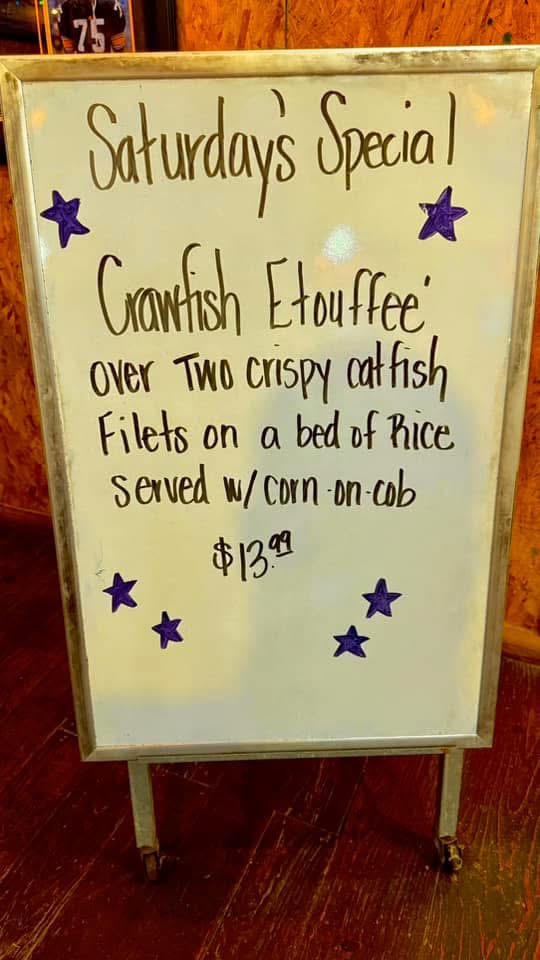 75
Saturday's Special
Crawfish Etouffee'
over Two crispy catfish
Filets on a bed of Rice
served w/ corn-on-cob
$13.99